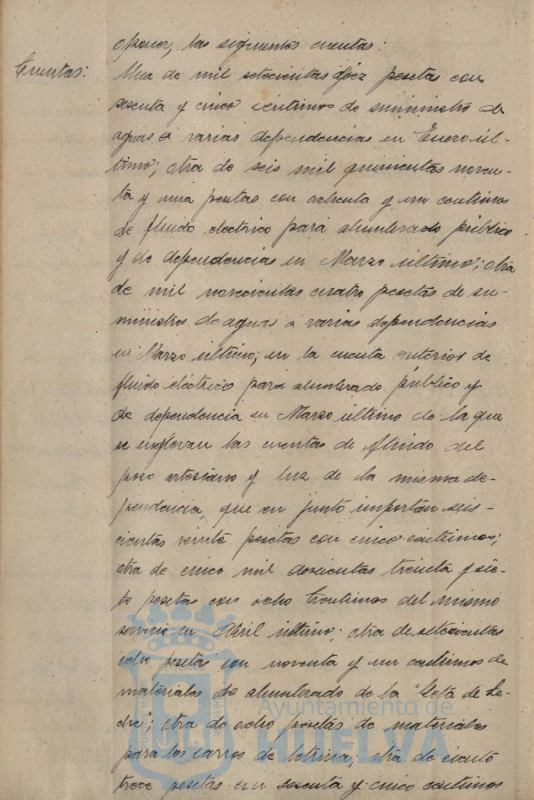 oponer, las siguientes cuentas:
Cuentas:
Una de mil setecientas diez pesetas con
sesenta y cinco centimos de suministro de
aguas a varias dependencias en Enero úl-
timo; otra de seis mil quinientas noven-
ta y una pesetas con ochenta y un centimos
de fluido electrico para alumbrado público
y de dependencias en Marzo último; otra
de mil novecientas cuatro pesetas de su-
ministros de aguas a varias dependencias
en Marzo ultimo; en la cuenta anterior de
fluido eléctrico para alumbrado público y
de dependencia en Marzo último de la que
se las cuentas de fluido del
pozo artesiano y luz de la misma de-
pendencia, que en junto importan seis-
cientas veinte pesetas con cinco centimos;
otra de cinco mil doscientas treinta y sie-
te pesetas con ocho centimos del mismo
servicio en Abril ultimo; otra de setecientas
ocho pesetas con noventa y un centimos de
materiales de alumbrado de la Gota de Le-
che; otra de ocho pesetas de materiales
para los carros de letrina; otra de ciento
trece pesetas con sesenta y cinco centimos
Ayuntamiento de
HUELVA